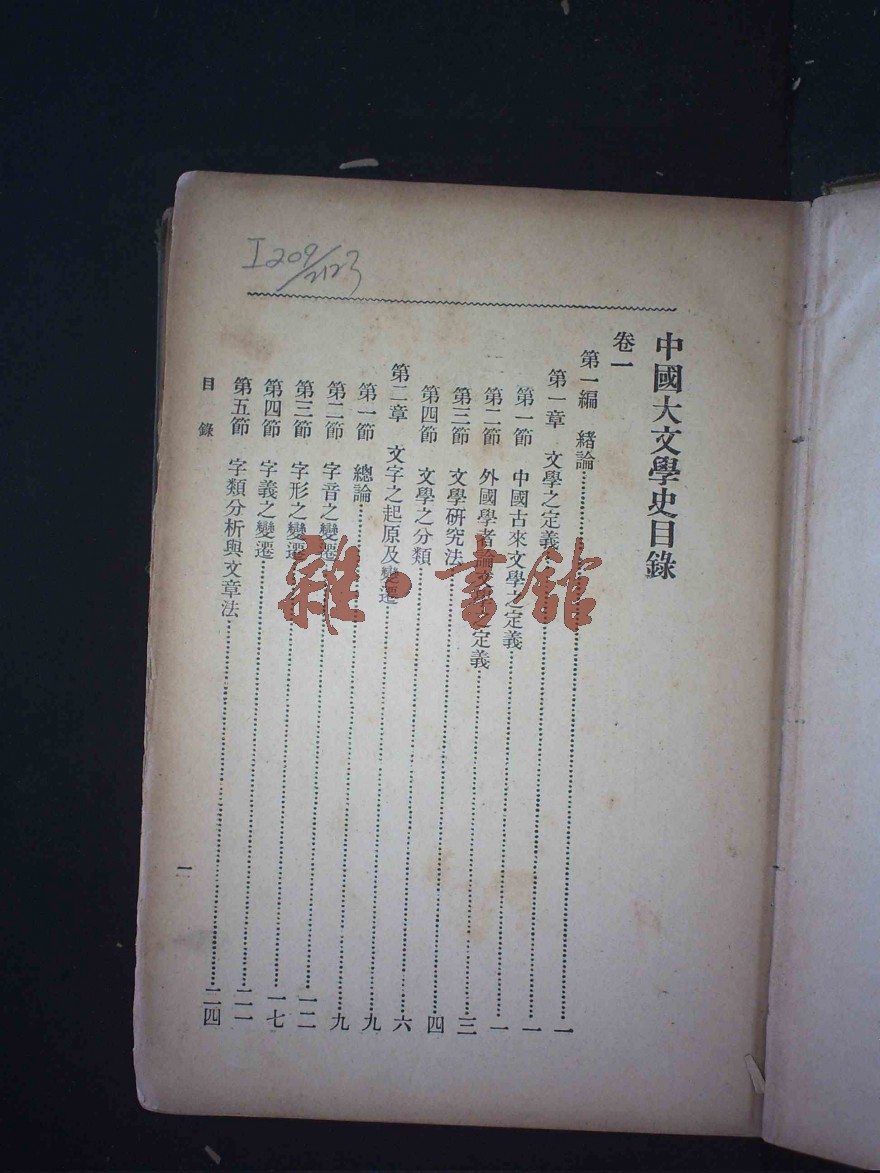 I209/2123
中國大文學史目錄
卷一
第一編 緒論……一
第一章 文學之定義……一
第一節 中國古來文學之定義……一
第二節 外國學者論文學之定義……三
第三節 文學研究法……四
第四節 文學之分類……六
第二章 文字之起原及變遷……九
第一節 總論……九
第二節 字音之變遷……一二
第三節 字形之變遷……一七
第四節 字義之變遷……二一
第五節 字類分析與文章法……二四
目錄
一
雜·書館